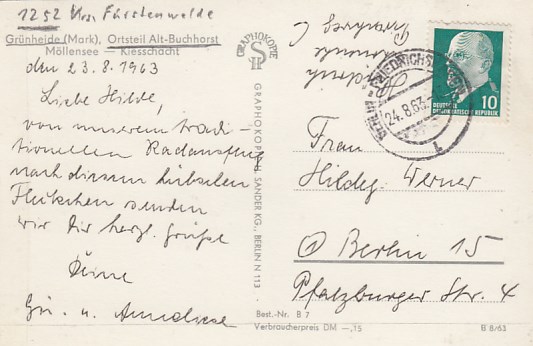 1252 Krs. Fürstenwalde
Grünheide (Mark), Ortsteil Alt-Buchhorst
Möllensee — Kiesschacht
den 23.8.1963
Liebe Hilde,
von unserem tradi-
tionellen Radausflug
nach diesem hübschen
Fleckchen senden
wir Dir herzl. Grüße
Deine
u. Anneliese
GRAPHOKOPIE
SH
GRAPHOKOPIE H. SANDER KG., BERLIN N 113
Best.-Nr. B 7
Verbraucherpreis DM —,15
24.8.63
10
DEUTSCHE
DEMOKRATISCHE REPUBLIK
Frau
Hildeg. Werner
Berlin 15
Pfalzburger Str. 4
B 8/63